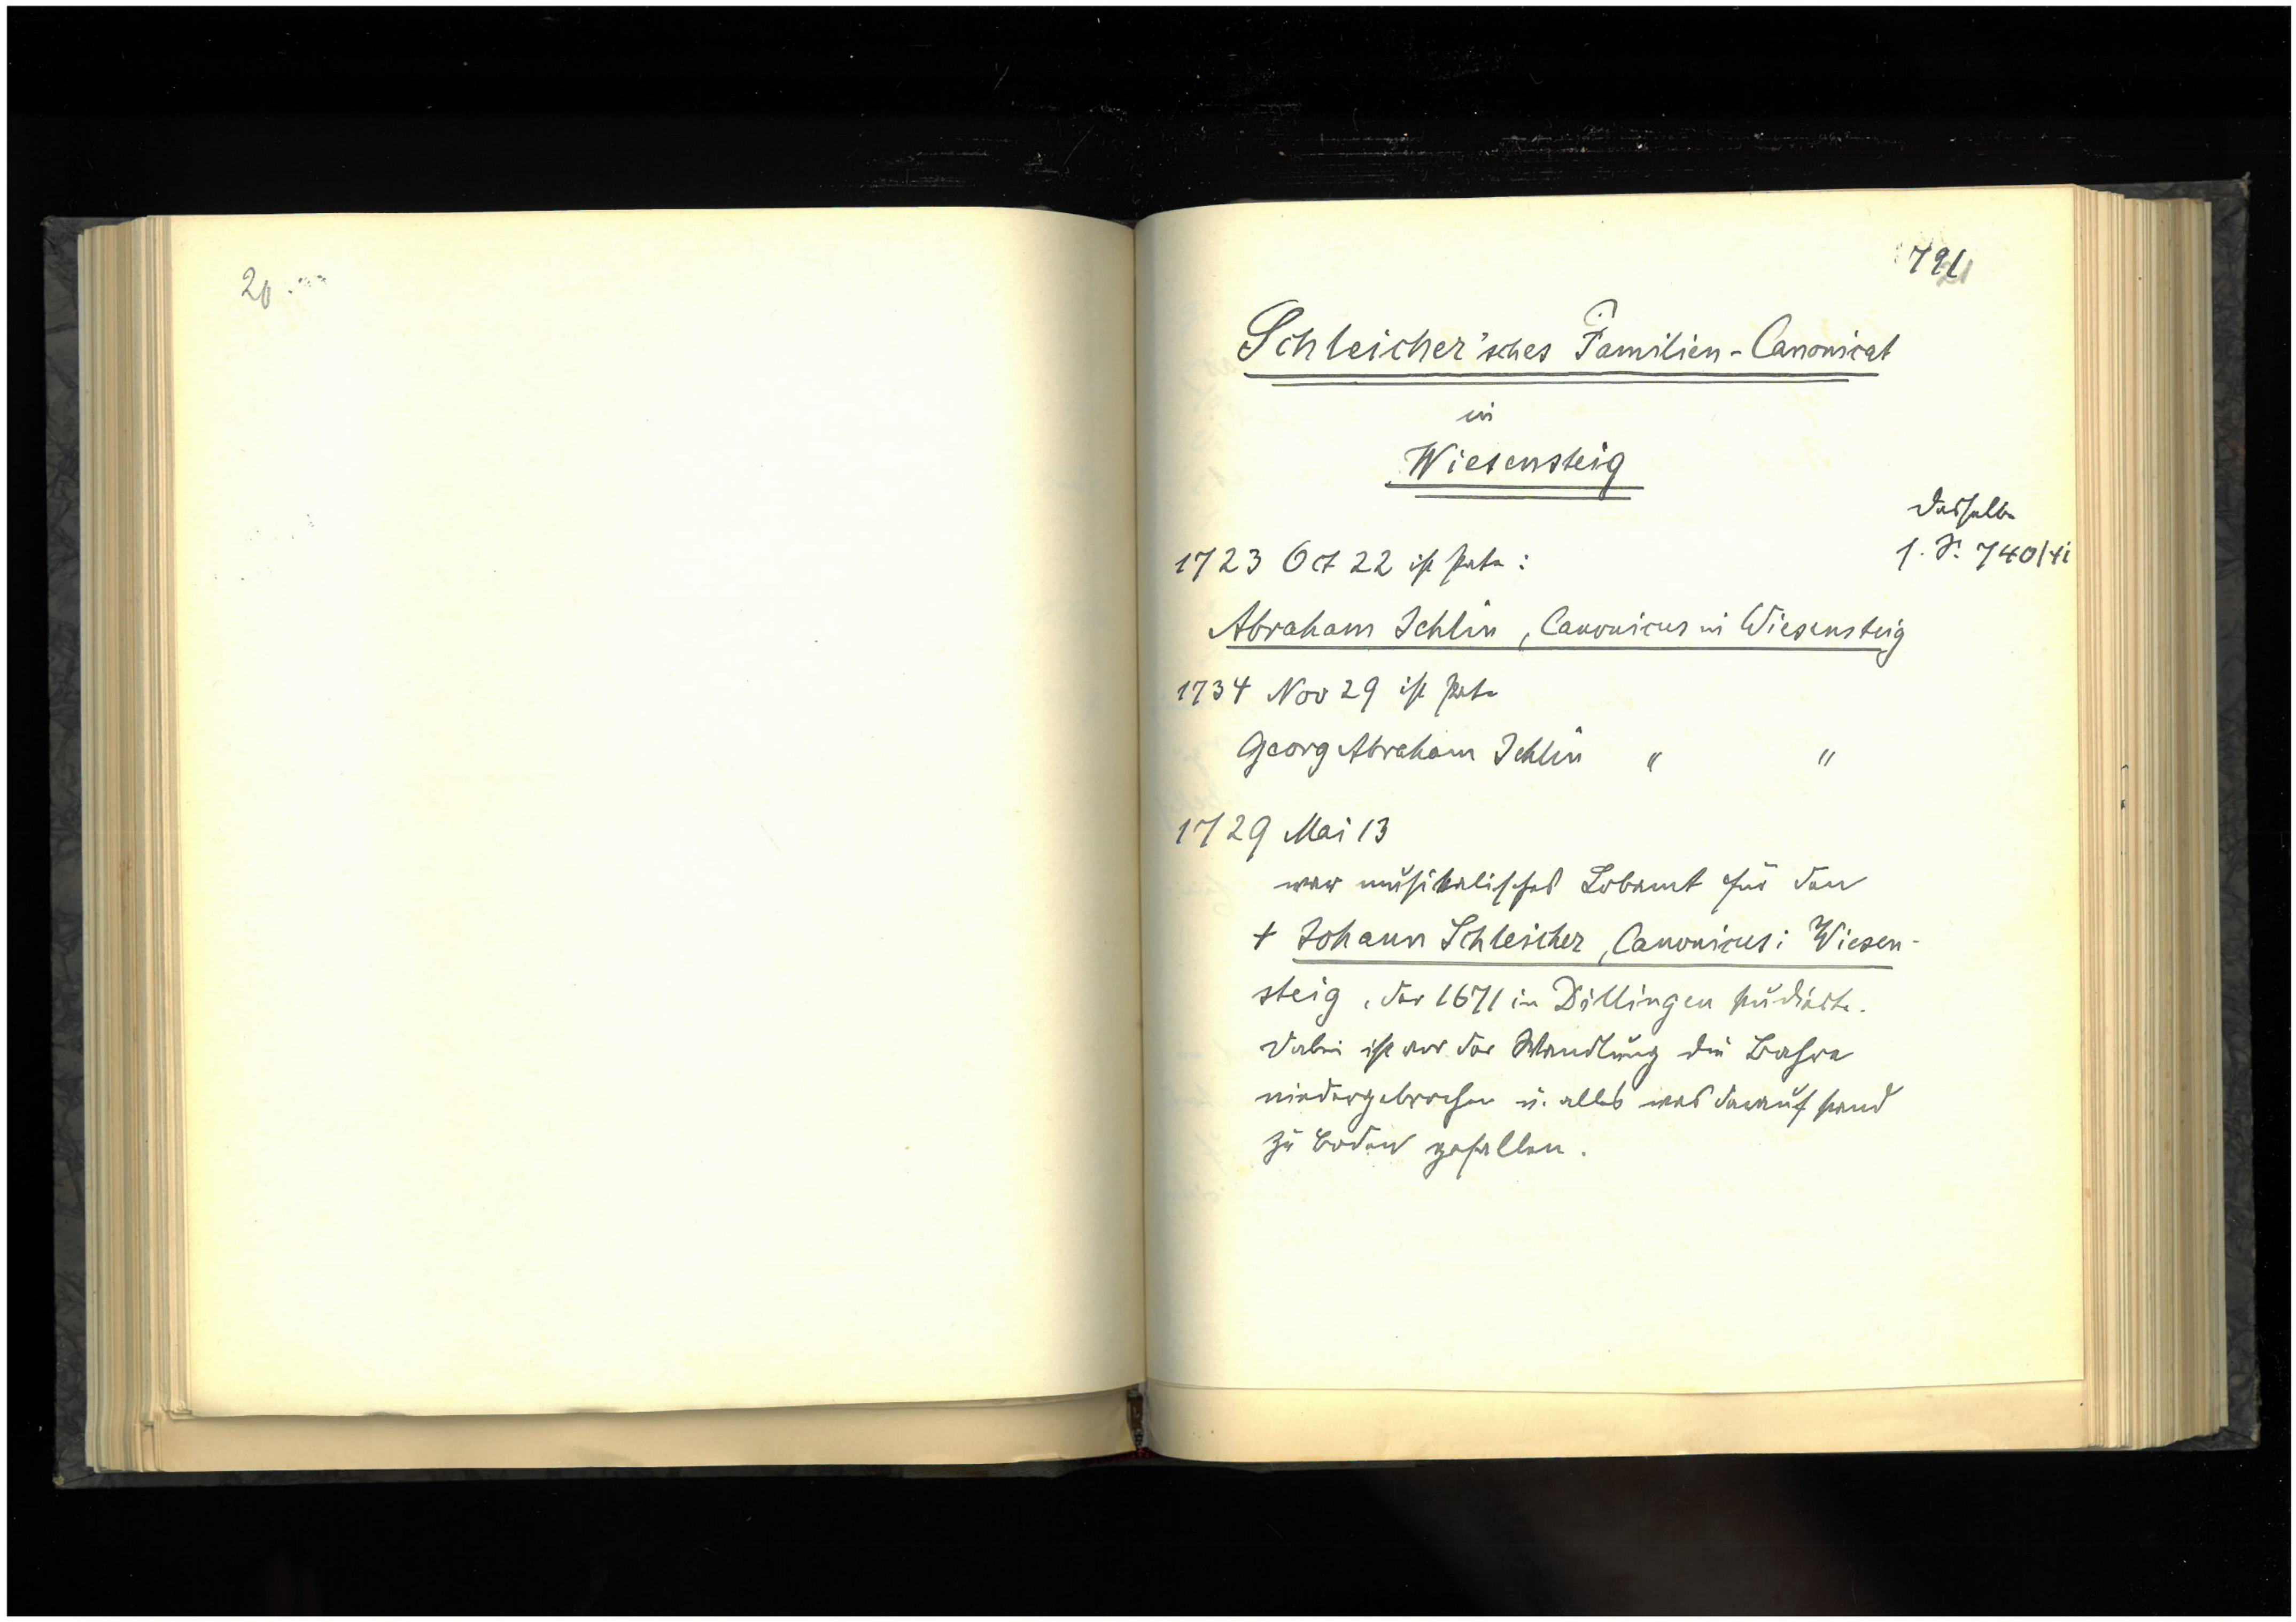 20
791
21
Schleicher'sches Familien-Canonicat
in
Wiesensteig
dasselbe
s. S. 740/41
1723 Oct 22 ist Pate:
Abraham Ichlin, Canonicus in Wiesensteig
1734 Nov 29 ist Pate
Georg Abraham Ichlin " "
1729 Mai 13
war musikalisches Lobamt für den
+ Johann Schleicher, Canonicus i Wiesen-
steig, der 1671 in Dillingen studierte.
Dabei ist vor der Wandlung die Bahre
niedergebrochen u. alles was darauf stand
zu Boden gefallen.